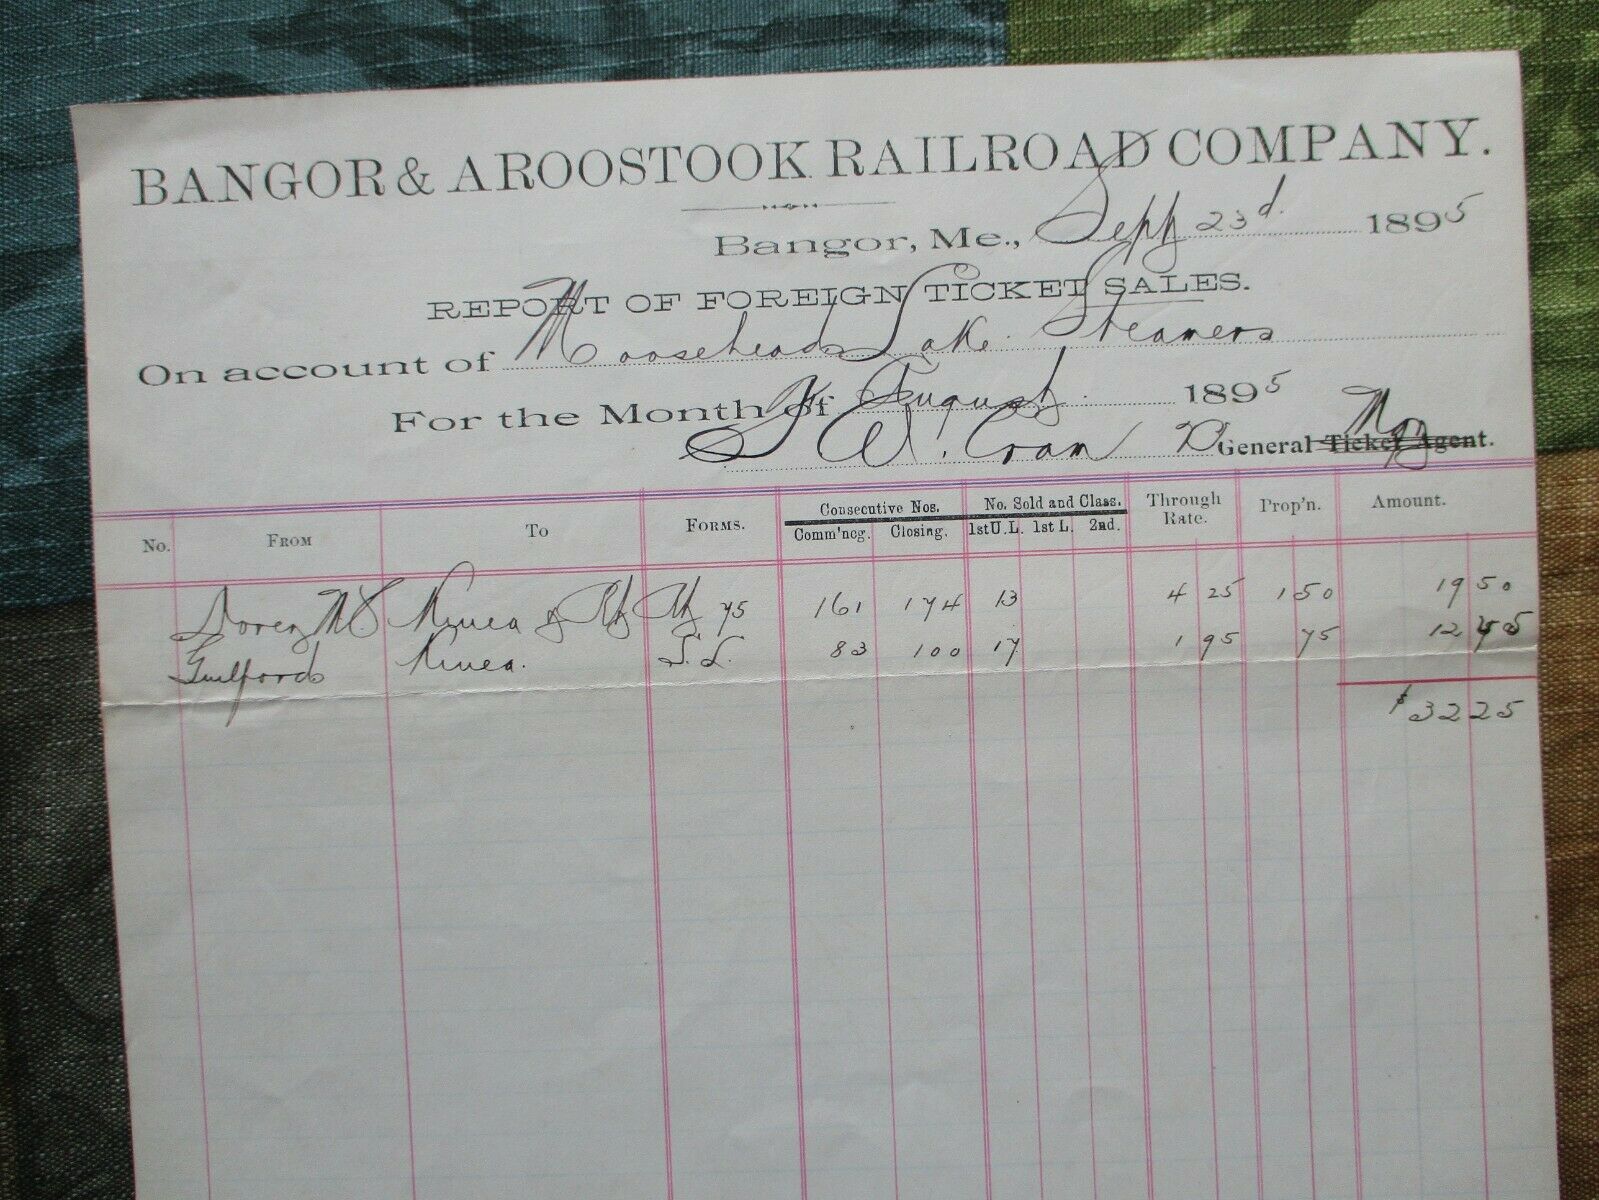 BANGOR & AROOSTOOK RAILROAD COMPANY.
Bangor, Me., Sept 23d 1895
REPORT OF FOREIGN TICKET SALES.
On account of Moosehead Lake Steamers
For the Month of August 1895
W. Cram General Ticket Agent.
No. FROM TO FORMS. Consecutive Nos. Comm'ncg. Closing. No. Sold and Class. 1st U. L. 1st L. 2nd. Through Rate. Prop'n. Amount.
Dover Kineo & 75 161 174 13 4 25 1 50 19 50
Guilford Kineo. S.L. 83 100 17 1 95 75 12 75
$32 25